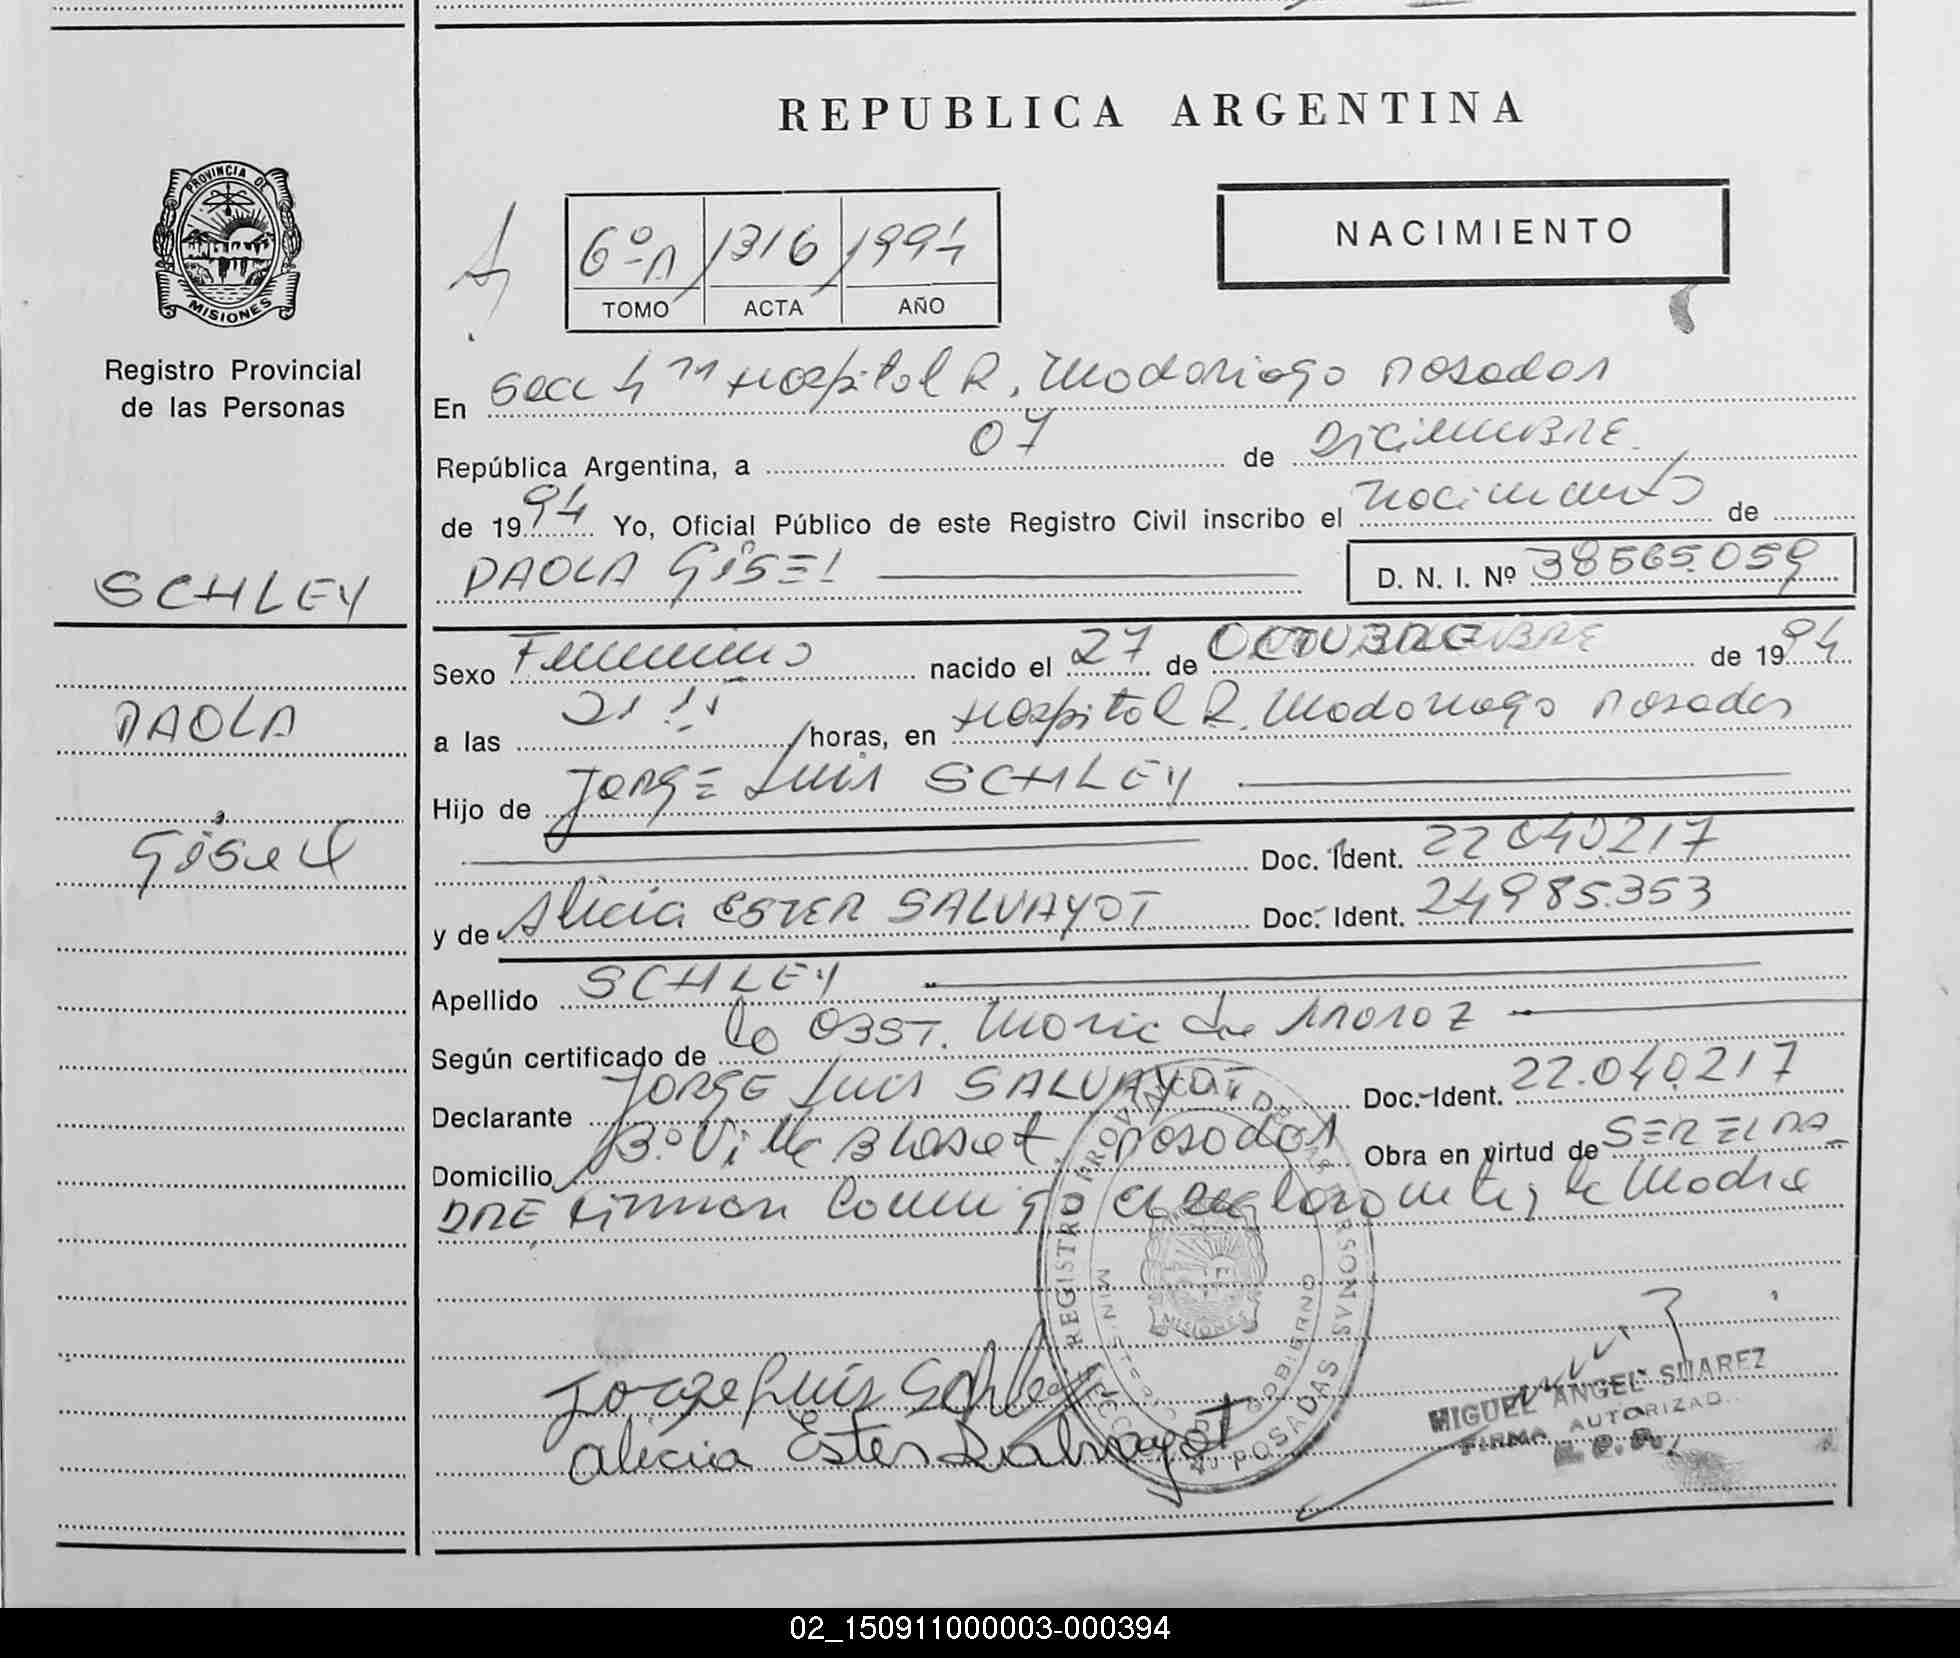 REPUBLICA ARGENTINA
PROVINCIA DE
MISIONES
Registro Provincial
de las Personas
6º A 1316 1994
TOMO ACTA AÑO
NACIMIENTO
En Secc 4ª Hospital R. Madariaga Posadas
República Argentina, a 07 de Diciembre
de 1994 Yo, Oficial Público de este Registro Civil inscribo el nacimiento de
PAOLA GISEL D. N. I. Nº 38565.059
SCHLEY
PAOLA
Gisel
Sexo Femenino nacido el 27 de OCTUBRE de 1994
a las 21:15 horas, en Hospital R. Madariaga Posadas
Hijo de JORGE Luis SCHLEY
Doc. Ident. 22.040.217
y de Alicia ESTER SALVAYOT Doc. Ident. 24985.353
Apellido SCHLEY
Según certificado de la OBST. Maria de
Declarante JORGE Luis SALVAYOT Doc. Ident. 22.040217
Domicilio Bº Villa Posadas Obra en virtud de SER EL PA_
DRE Firman Conmigo el y la Madre
Jorge Luis Schley
Alicia Ester Salvayot
REGISTRO PROVINCIAL DE LAS PERSONAS
MINISTERIO DE GOBIERNO
MISIONES
POSADAS
MIGUEL ANGEL SUAREZ
FIRMA AUTORIZAD
02_150911000003-000394